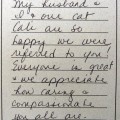 My husband &
I & our cat
Cali are so
happy we were
referred to you!
Everyone is great
& we appreciate
how caring &
compassionate
you all are.